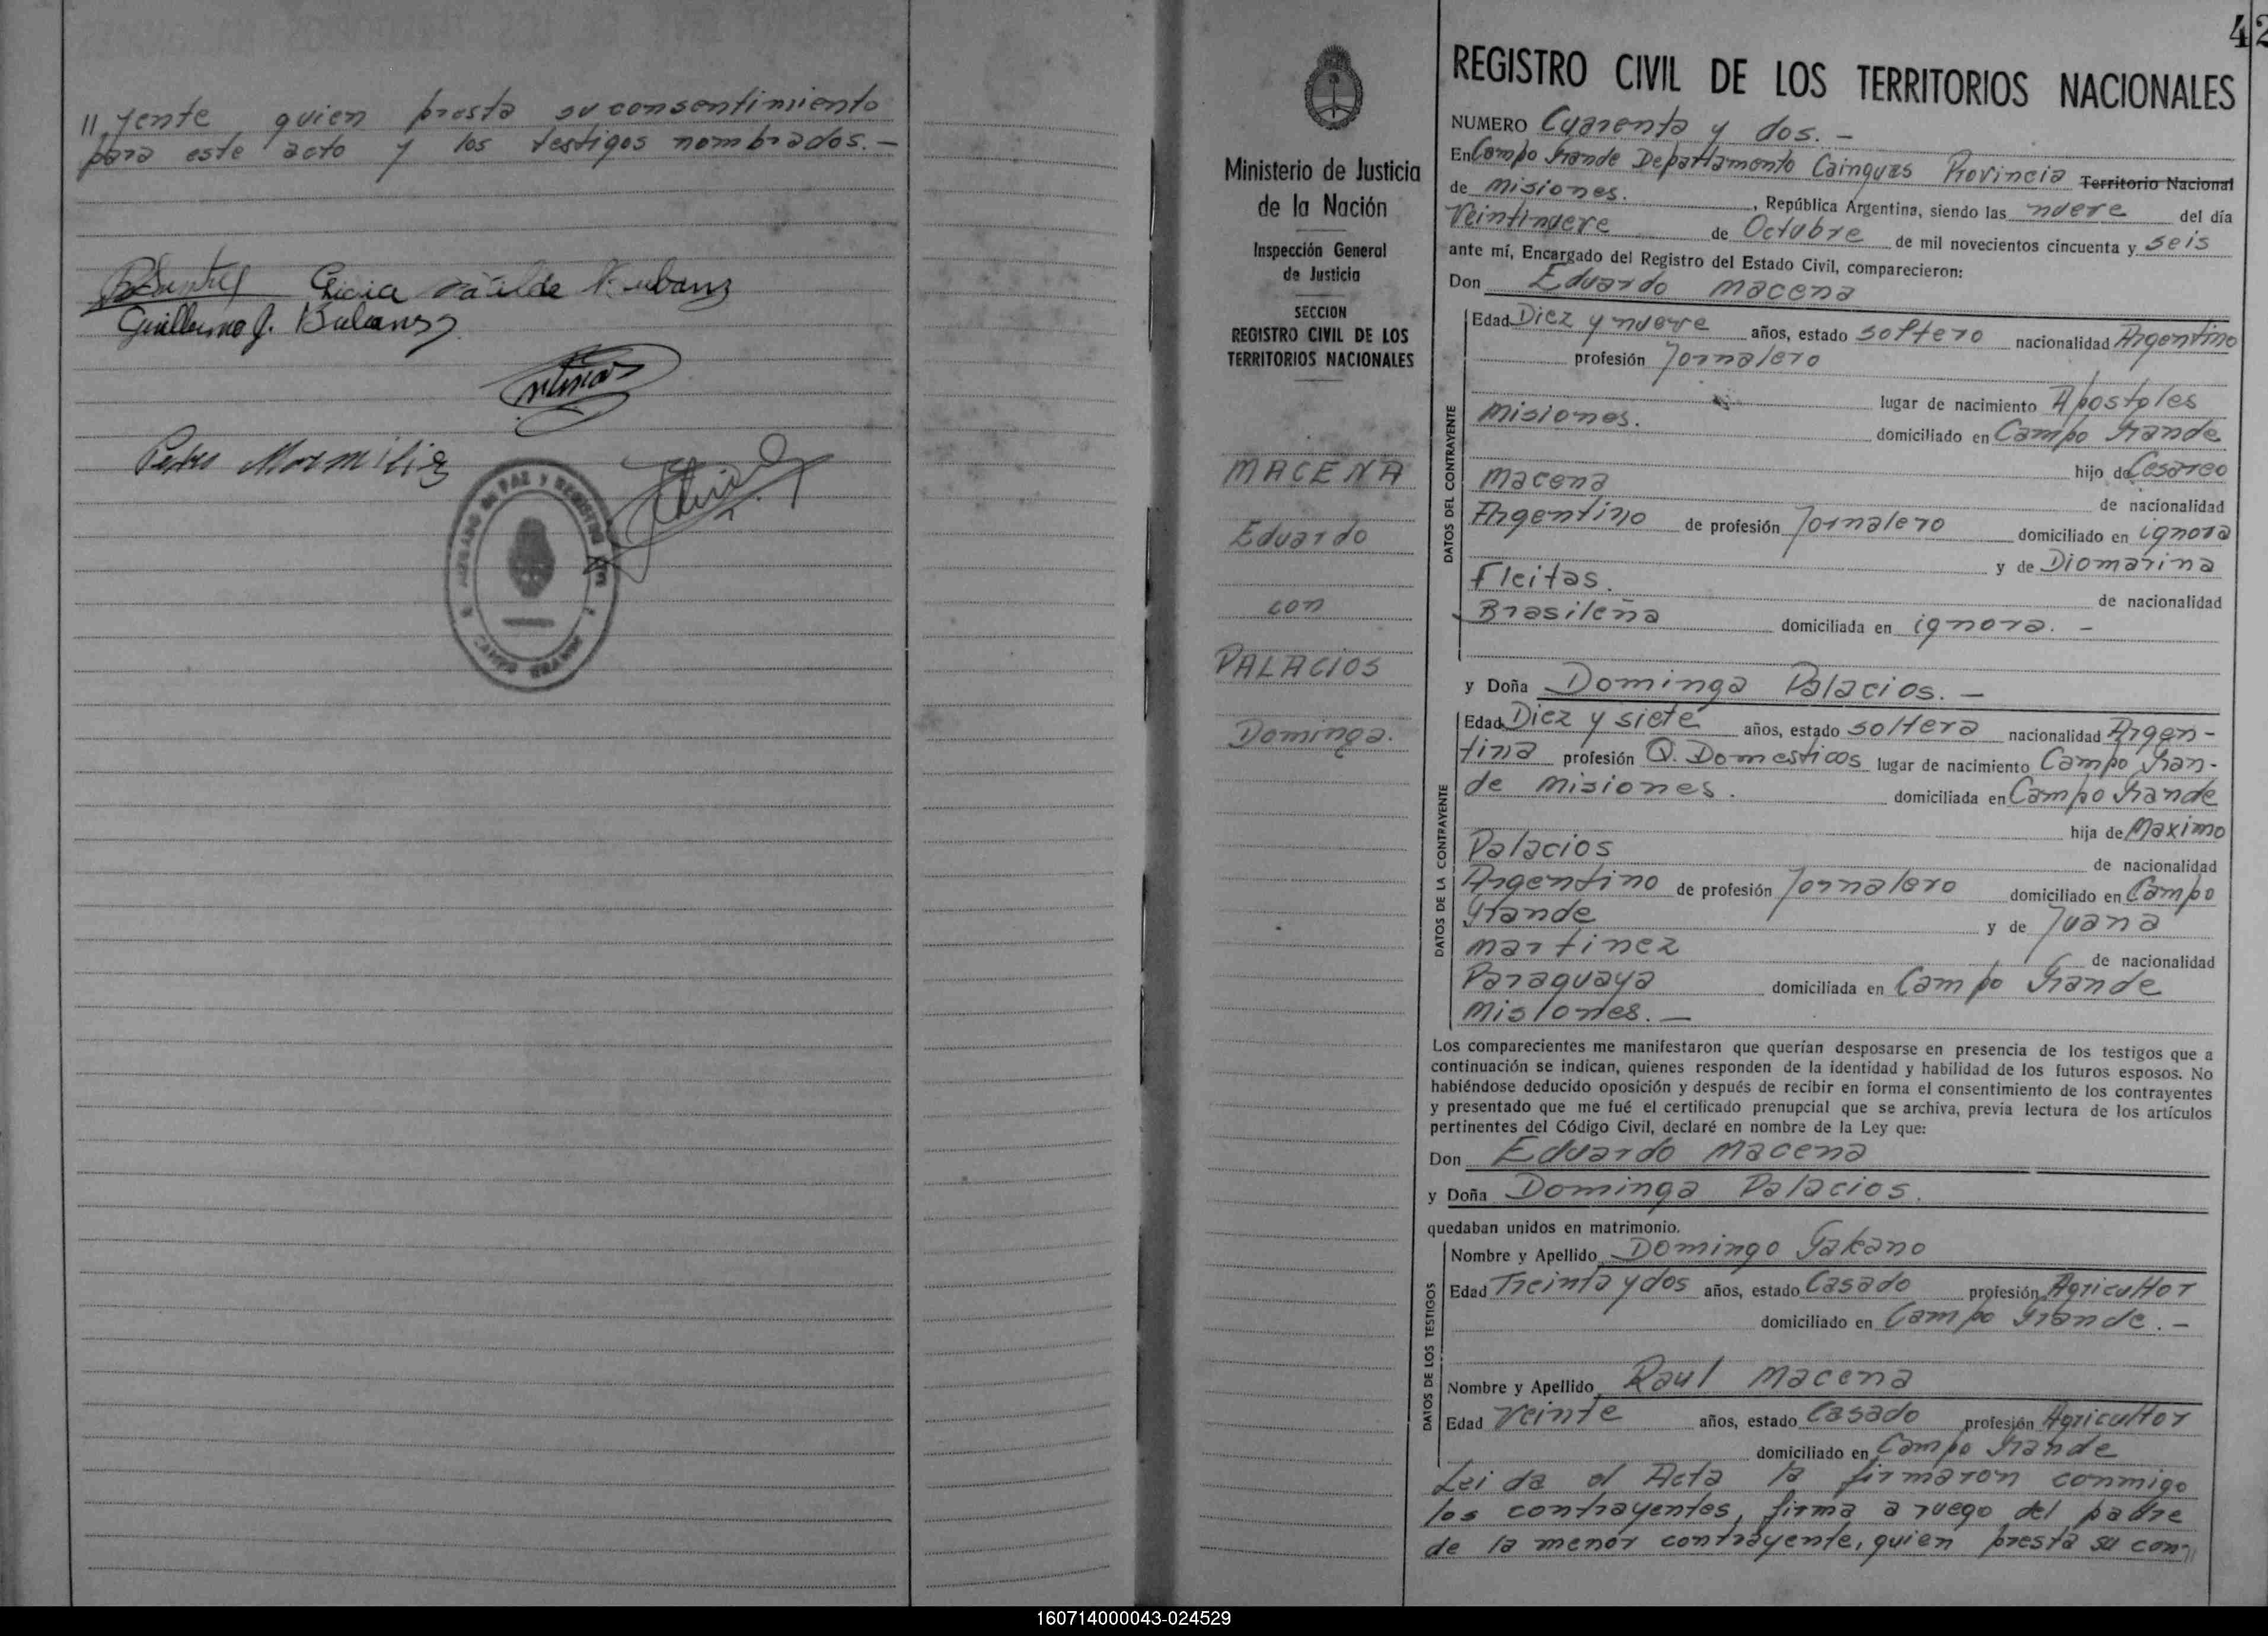 //yente quien presta su consentimiento
para este acto y los testigos nombrados.—
Guillermo J.
Pedro
42
REGISTRO CIVIL DE LOS TERRITORIOS NACIONALES
Ministerio de Justicia
de la Nación
Inspección General
de Justicia
SECCION
REGISTRO CIVIL DE LOS
TERRITORIOS NACIONALES
MACENA
Eduardo
con
PALACIOS
Dominga.
NUMERO Cuarenta y dos.—
En Campo Grande Departamento Cainguas Provincia Territorio Nacional
de Misiones. , República Argentina, siendo las nueve del día
Veintinueve de Octubre de mil novecientos cincuenta y seis
ante mí, Encargado del Registro del Estado Civil, comparecieron:
Don Eduardo Macena
DATOS DEL CONTRAYENTE
Edad Diez y nueve años, estado soltero nacionalidad Argentino
profesión Jornalero
lugar de nacimiento Apostoles
Misiones. domiciliado en Campo Grande
hijo de Cesareo
Macena de nacionalidad
Argentino de profesión Jornalero domiciliado en ignora
y de Diomarina
Fleitas. de nacionalidad
Brasileña domiciliada en ignora.—
y Doña Dominga Palacios.—
DATOS DE LA CONTRAYENTE
Edad Diez y siete años, estado soltera nacionalidad Argen-
tina profesión Q. Domesticos lugar de nacimiento Campo Gran-
de Misiones. domiciliada en Campo Grande
hija de Maximo
Palacios de nacionalidad
Argentino de profesión Jornalero domiciliado en Campo
Grande y de Juana
Martinez de nacionalidad
Paraguaya domiciliada en Campo Grande
Misiones.—
Los comparecientes me manifestaron que querían desposarse en presencia de los testigos que a
continuación se indican, quienes responden de la identidad y habilidad de los futuros esposos. No
habiéndose deducido oposición y después de recibir en forma el consentimiento de los contrayentes
y presentado que me fué el certificado prenupcial que se archiva, previa lectura de los artículos
pertinentes del Código Civil, declaré en nombre de la Ley que:
Don Eduardo Macena
y Doña Dominga Palacios.
quedaban unidos en matrimonio.
DATOS DE LOS TESTIGOS
Nombre y Apellido Domingo Galeano
Edad Treinta y dos años, estado Casado profesión Agricultor
domiciliado en Campo Grande.—
Nombre y Apellido Raul Macena
Edad Veinte años, estado Casado profesión Agricultor
domiciliado en Campo Grande
Leida el Acta la firmaron conmigo
los contrayentes, firma a ruego del padre
de la menor contrayente, quien presta su con//
160714000043-024529